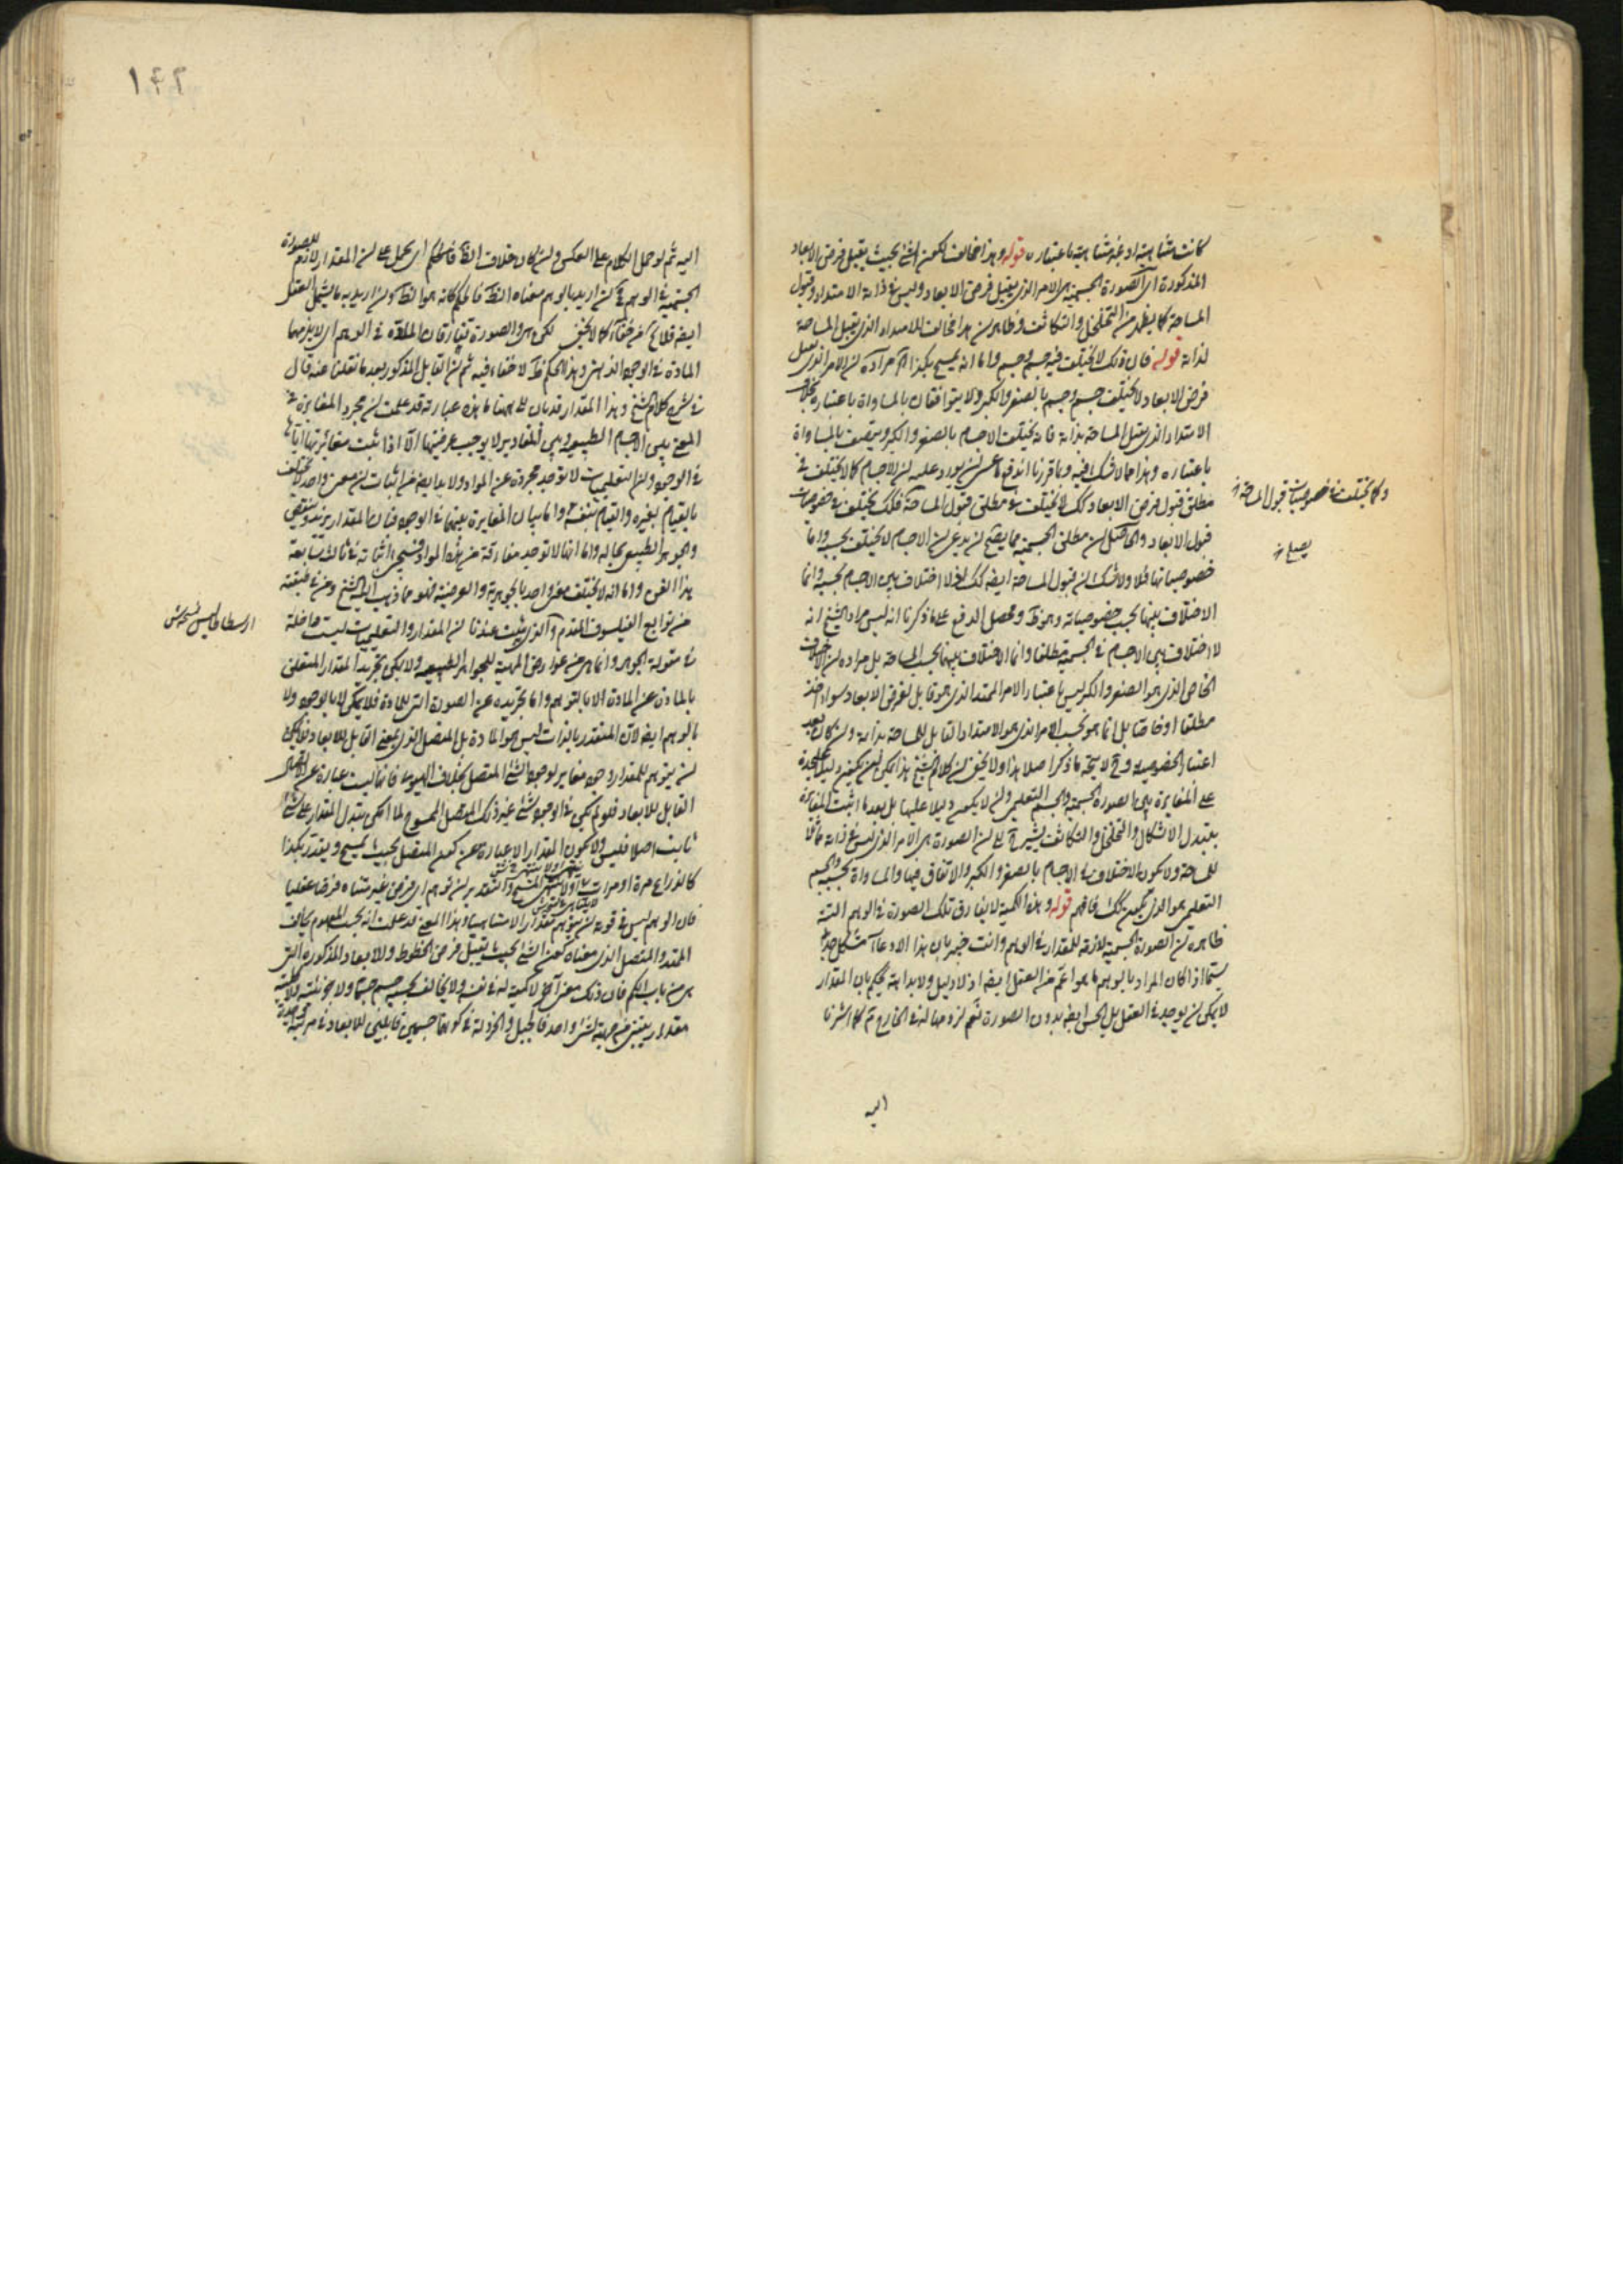 كانت متناهية او غير متناهية باعتباره قوله وهذا مخالف لكون الشئ بحيث يقبل فرض الابعاد
المذكورة اى الصورة الجسمية هى الامر الذى يقبل فرض الابعاد وليس فى ذاته الامتداد وقبول
المساحة كما يظهر من التخلخل والتكاثف وظاهر ان هذا مخالف للامتداد الذى يقبل المساحة
لذاته قوله فان ذلك لا يختلف فيه جسم وجسم واما انه يمسح بكذا مراده ان الامر الذى يقبل
فرض الابعاد لا يختلف جسم وجسم بالصغر والكبر ولا يتوافقان بالمساواة باعتباره بخلاف
الامتداد الذى يقبل المساحة بذاته فانه يختلف الاجسام بالصغر والكبر ويتصف بالمساواة
باعتباره وهذا مما لا شك فيه وبما قررنا اندفع ما عسى ان يورد عليه ان الاجسام كما لا يختلف فى
مطلق قبول فرض الابعاد كك لا يختلف فى مطلق قبول المساحة فكك يختلف فى خصوصيات
وكما يختلف فى خصوصيات قبول المساحة
قبول الابعاد والحاصل ان مطلق الجسمية مما يصح ان يدعى ان الاجسام لا يختلف بحسبه واما
يصح
خصوصياتها فلا ولا شك ان قبول المساحة ايضا كك اذ لا اختلاف بين الاجسام بحسبه وانما
الاختلاف بينها بحسب خصوصياته وهو ظ ومحصل الدفع على ما ذكرنا انه ليس مراد الشيخ انه
لا اختلاف بين الاجسام فى الجسمية مطلقا وانما الاختلاف بينهما بحسب المساحة بل مراده ان الاختلاف
الخاص الذى هو الصغر والكبر ليس باعتبار الامر الممتد الذى هو قابل لفرض الابعاد سواء اخذ
مطلقا او خاصا بل انما هو بحسب الامر الذى هو الامتداد القابل للمساحة بذاته وان كان بعد
اعتبار الخصوصية وح لا يتجه ما ذكر اصلا هذا ولا يخفى ان كلام الشيخ هذا يمكن ان يكون دليلا
على المغايرة بين الصورة الجسمية والجسم التعليمى وان لا يكون دليلا عليها بل بعد ما اثبت المغايرة
بتبدل الاشكال والتخلخل والتكاثف يشير الى ان الصورة هى الامر الذى ليس فى ذاته قابلا
للمساحة ولا يكون الاختلاف فى الاجسام بالصغر والكبر والاتفاق فيها والمساواة بحسبه والجسم
التعليمى هو الذى يكون كك فافهم قوله وهذه الكمية لا يفارق تلك الصورة فى الوهم البتة
ظاهره ان الصورة الجسمية لازمة للمقدار فى الوهم وانت خبير بان هذا الادعاء مشكل جدا
سيما اذا كان المراد بالوهم ما هو اعم من العقل ايضا اذ لا دليل ولا بداهة يحكم بان المقدار
لا يمكن ان يوجد فى العقل بل الحس ايضا بدون الصورة نعم لزومها له فى الخارج مر كما اشرنا
اليه
١٤٢
اليه ثم لو حمل الكلام على العكس وان كان خلاف الظ فالحكم اى يحمل على ان المقدار لازم للصورة
الجسمية فى الوهم فح ان اريد بالوهم معناه الظ فالحكم كانه هو الظ وان اريد به ما يشمل العقل
ايضا فلا يخ عن خفاء كما لا يخفى لكن هى والصورة تفارقان المادة فى الوهم اى لا يلزمهما
المادة فى الوجود الذهنى وهذا الحكم ظ لا خفاء فيه ثم ان القابل المذكور بعد ما نقلنا عنه قال
فى شرح كلام الشيخ وهذا المقدار قد بان لك ههنا ما هذه عبارته قد علمت ان مجرد المغايرة فى
المعنى بين الاجسام الطبيعية وبين المقادير لا يوجب عرضيتها الا اذا ثبت مغايرتها اياها
فى الوجود وان التعليميات لا توجد مجردة عن المواد ولا بد ايضا من اثبات ان معنى واحد لا يختلف
بالقيام بغيره والقيام بنفسه واما بيان المغايرة بينهما فى الوجود فبان المقدار يزيد وينقص
والجوهر الطبيعى بحاله واما انها لا توجد مفارقة عن هذه المواد فسيجئ اثباته فى ثالث سابعة
هذا الفن واما انه لا يختلف معنى واحد بالجوهرية والعرضية فهو مما ذهب اليه الشيخ ومن فى طبقته
من توابع الفيلسوف المقدم والذى يثبت عندنا ان المقدار والتعليميات ليست داخلة
ارسطاطاليس
فى مقولة الجوهر وانما هى من عوارض المهية للجواهر الطبيعية ولا يمكن تجريد المقدار المتعلق
بالمادة عن المادة الا بالتوهم واما تجريده عن الصورة التى للمادة فلا يمكن لا بالوجود ولا
بالوهم ايضا لان المتقدر بالذات ليس هو المادة بل المتصل الذى بمعنى القابل للابعاد فلا يمكن
ان يتوهم للمقدار وجود مغاير لوجود الشئ المتصل بخلاف الهيولى فانها ليست عبارة عن المتصل
القابل للابعاد فلو لم يكن فى الوجود شئ غير ذلك المتصل الممسوح لما امكن تبدل المقدار على شئ
ثابت اصلا فليس ولا يكون المقدار الا عبارة عن كون المتصل بحيث يمسح ويقدر بكذا
كالذراع مرة او مرات ينتهى او لا ينتهى المسح والتقدير ان توهم اى فرض غير متناه فرضا عقليا
فان الوهم ليس فى قوته ان يتوهم مقدارا لامتناهيا وهذا المعنى قد علمت انه بحسب المفهوم يخالف
الممتد والمتصل الذى معناه كون الشئ بحيث يقبل فرض الخطوط والابعاد المذكورة التى
هى من باب الكم فان ذلك معنى آخر لا كمية له فى نفسه ولا يخالف بحسبه جسم جسما ولا بجزئية ولا كلية
مقدار يعتبر من جهته لشئ واحد فالجبل والخردلة فى كونهما جسمين قابلين للابعاد فى مرتبة واحدة